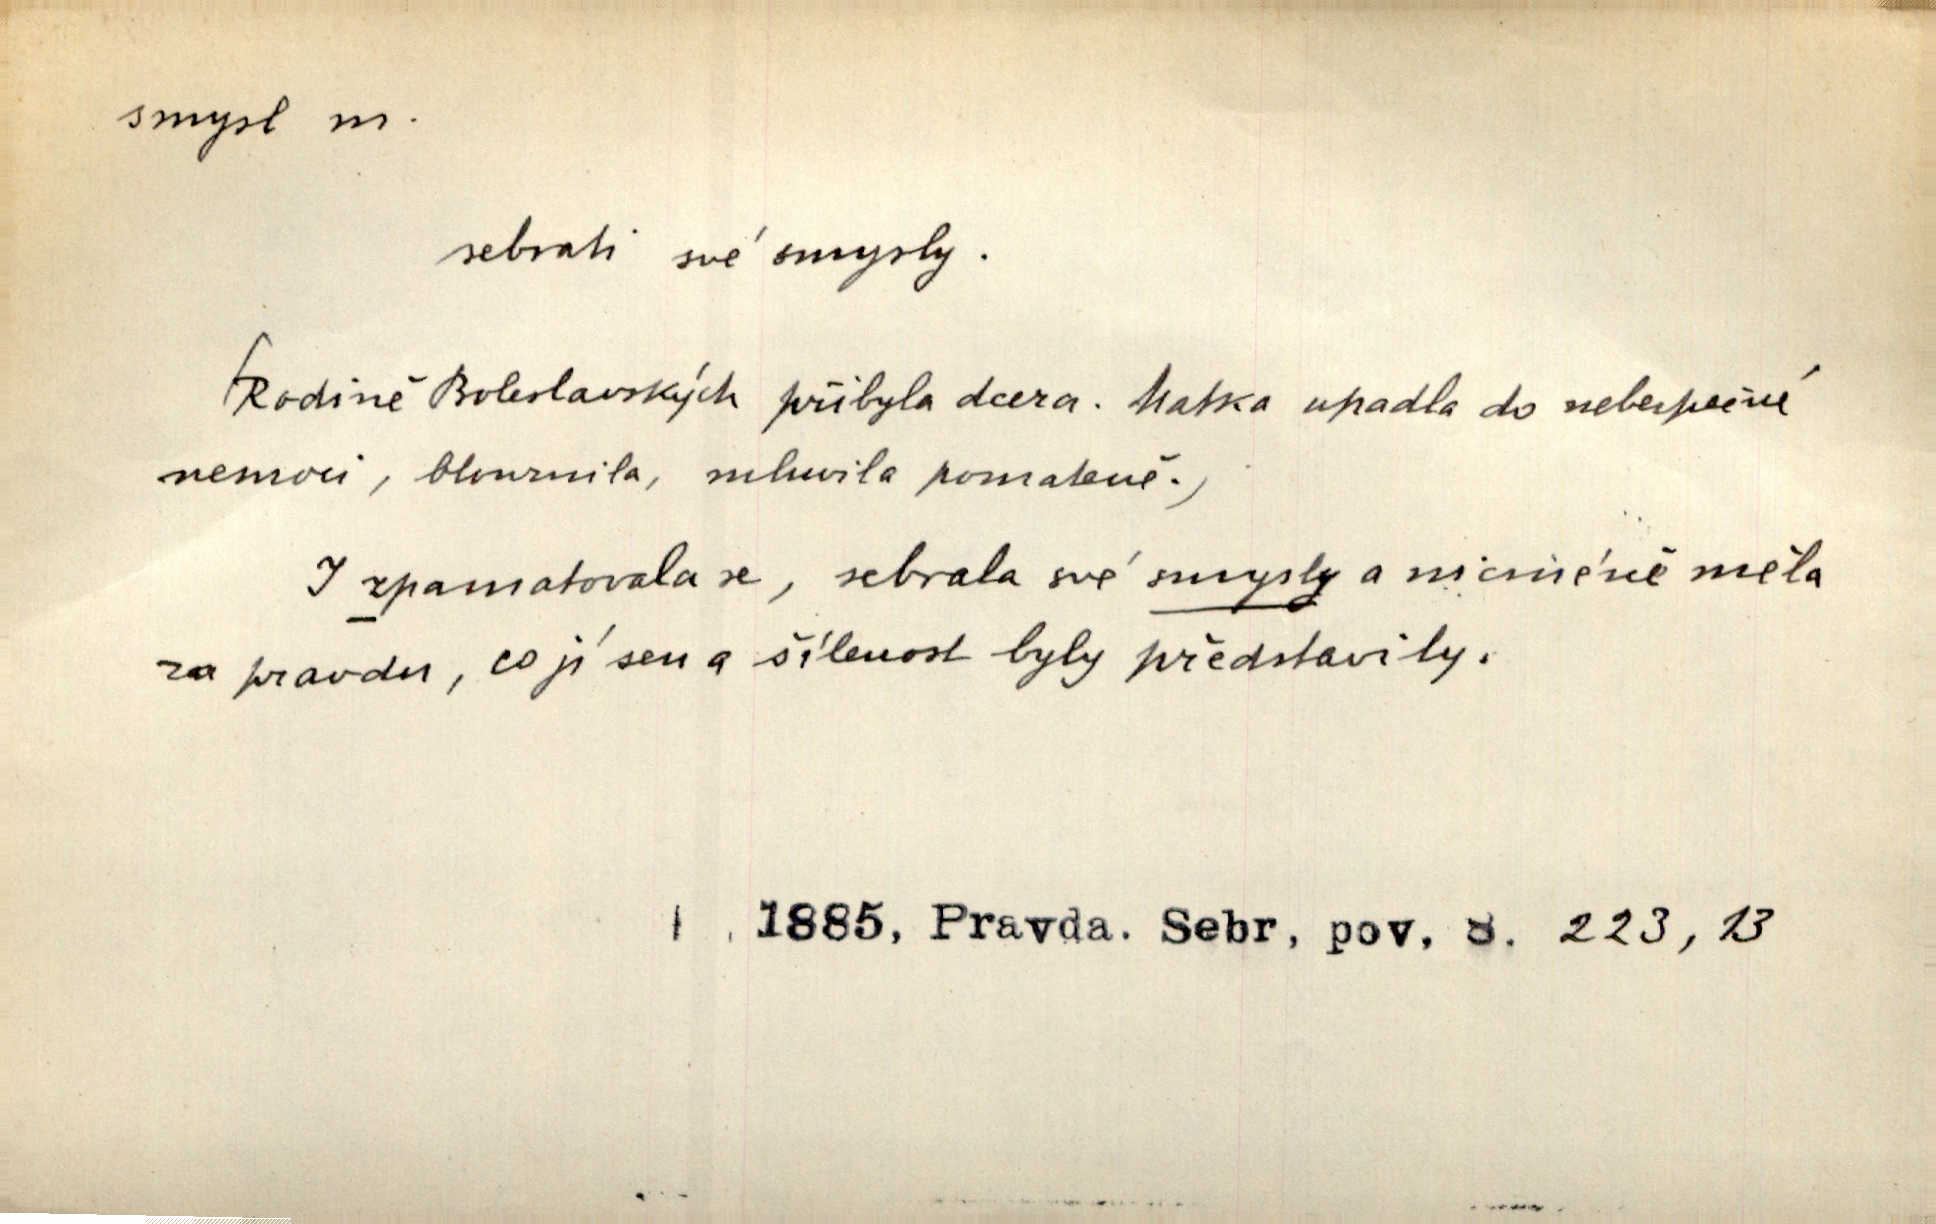 smysl m.
sebrati své smysly.
(Rodině Boleslavských přibyla dcera. Matka upadla do nebezpečné
nemoci, blouznila, mluvila pomateně.)
I zpamatovala se, sebrala své smysly a nicméně měla
za pravdu, co jí sen a šílenost byly představily.
1885, Pravda. Sebr, pov. 8. 223, 13